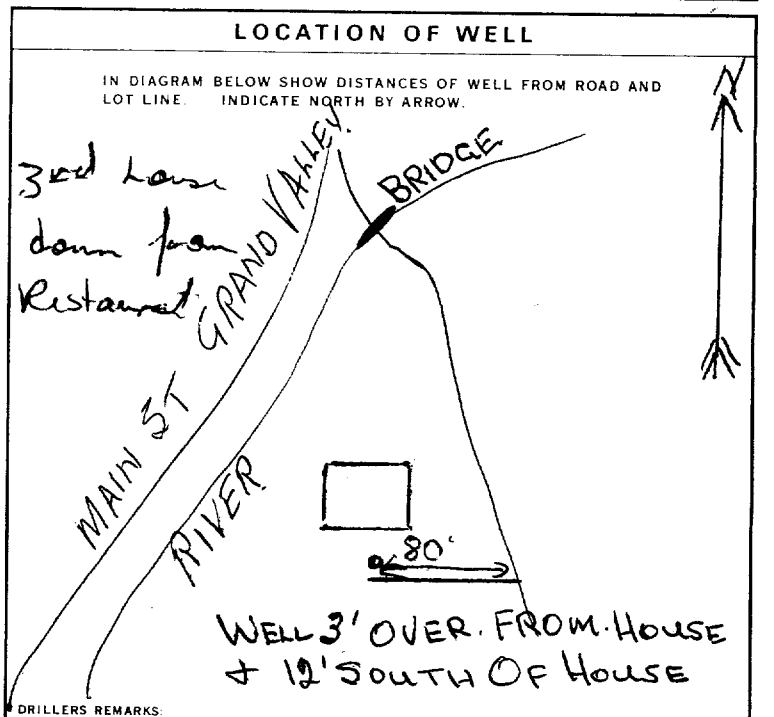 LOCATION OF WELL
IN DIAGRAM BELOW SHOW DISTANCES OF WELL FROM ROAD AND
LOT LINE. INDICATE NORTH BY ARROW.
N
3rd house
down from
Restaurant
MAIN ST GRAND VALLEY.
BRIDGE
RIVER
80'
WELL 3' OVER. FROM. HOUSE
+ 12' SOUTH OF HOUSE
DRILLERS REMARKS: